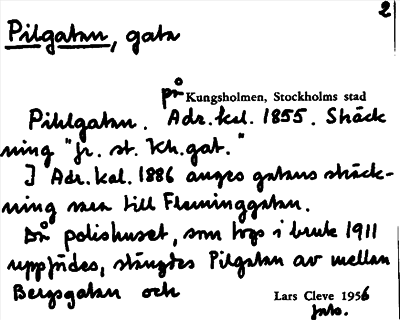 2
Pilgatan, gata
på Kungsholmen, Stockholms stad
Pihlgatan. Adr.kal. 1855. Sträck
ning "fr. st. Kh.gat."
I Adr.kal. 1886 anges gatans sträck-
ning vara till Fleminggatan.
Då polishuset, som togs i bruk 1911
uppfördes, stängdes Pilgatan av mellan
Bergsgatan och
Lars Cleve 1956